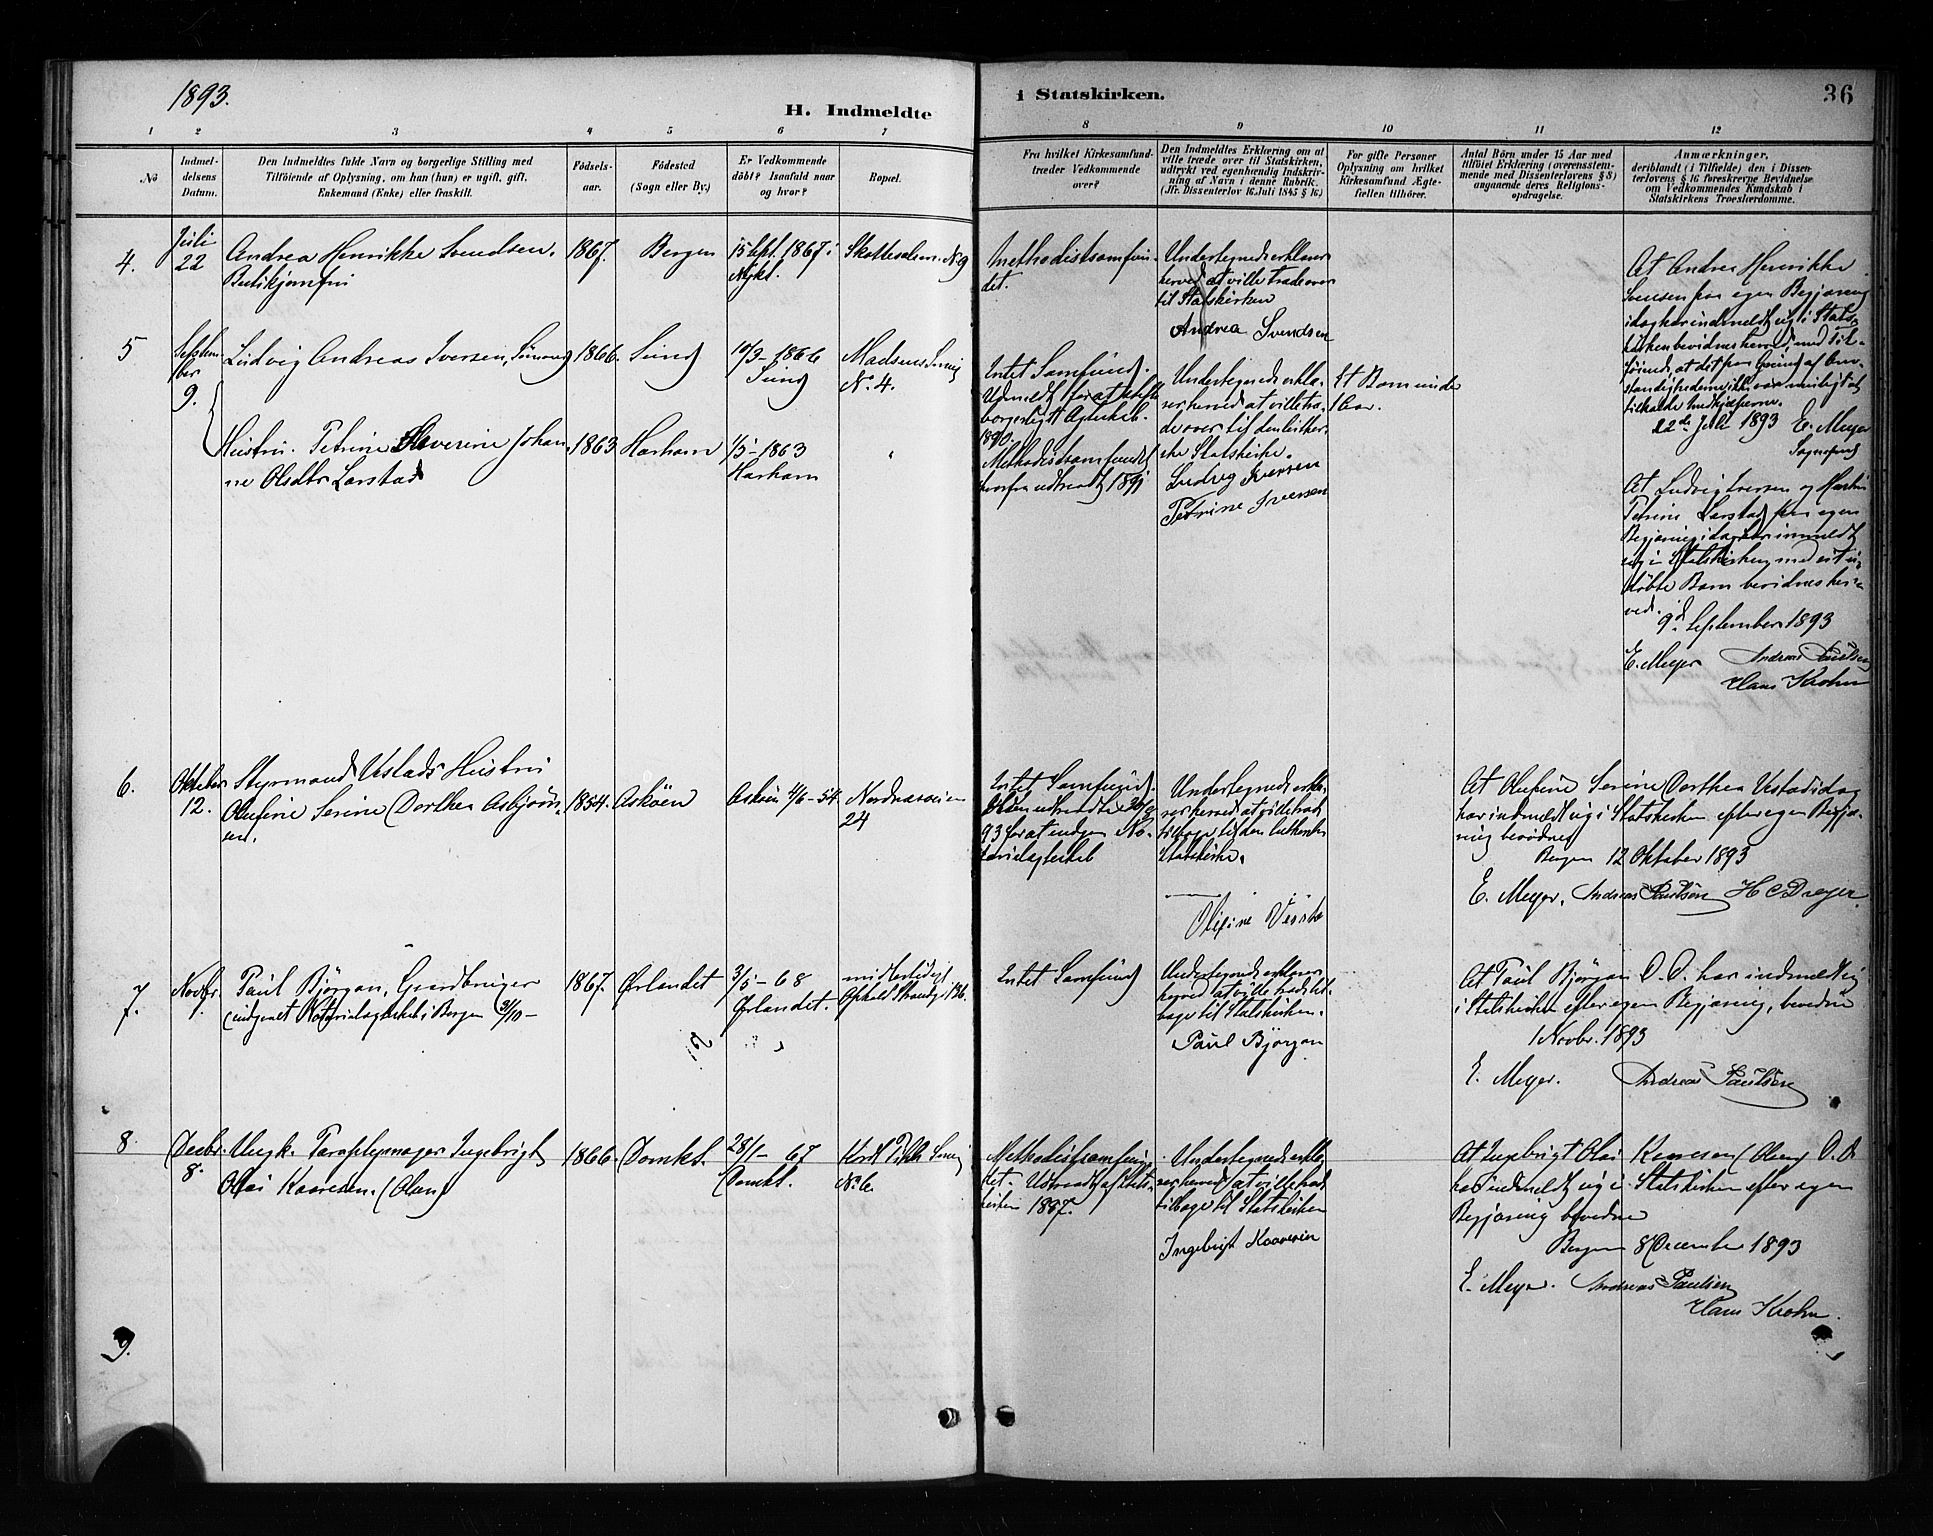 1893.
H. Indmeldte
i Statskirken.
36
1
2
3
4
5
6
7
8
9
10
11
12
No
Indmel-
delsens
Datum.
Den Indmeldtes fulde Navn og borgerlige Stilling med
Tilföiende af Oplysning, om han (hun) er ugift, gift,
Enkemand (Enke) eller fraskilt.
Födsels-
aar.
Födested
(Sogn eller By.)
Er Vedkommende
döbt? Isaafald naar
og hvor?
Bopæl.
Fra hvilket Kirkesamfund
træder Vedkommende
over?
Den Indmeldtes Erklæring om at
ville træde over til Statskirken,
udtrykt ved egenhændig Indskriv-
ning af Navn i denne Rubrik.
(Jfr. Dissenterlov 16 Juli 1845 § 16)
For gifte Personer
Oplysning om hvilket
Kirkesamfund Ægte-
fællen tilhörer.
Antal Börn under 15 Aar med
tilföiet Erklæring (overensstem-
mende med Dissenterlovens § 8)
angaaende deres Religions-
opdragelse.
Anmærkninger,
deriblandt (i Tilfælde) den i Dissen-
terlovens § 16 foreskrevne Bevidnelse
om Vedkommendes Kundskab i
Statskirkens Troeslærdomme.
4.
Juli
22
Andrea Henrikke Svendsen.
Butikjomfru
1867.
Bergen
15 Sept. 1867 i
Nykt.
Skottesalen. N. 9
Methodistsamfun-
det.
Undertegnede erklærer
herved at ville træde over
til Statskirken
Andrea Svendsen
At Andrea Henrikke
Svensen paa egen Begjæring
idag har indmeldt sig i Stats-
kirken bevidnes herved, med Til-
föiende, at det paa Grund af Om-
stændighederne ikke var muligt at
tilkalde Medhjælperne.
22de Juli 1893 E. Meyer
Sognepræst
5
Septem
ber
9.
Ludvig Andreas Iversen, Sömand
1866.
Sund
10/9 - 1866
Sund
Madsens Smug
N. 4.
Intet Samfund.
Udmeldt for at stifte
borgerligt Ægteskab.
1890.
Undertegnede erklæ-
rer herved at ville træ-
de over til den luther-
ske Statskirke.
Ludvig Iversen
Petrine Iversen
Et Barn under
1 Aar.
Hustru. Petrine Severine Johan
ne Olsdtr Larstad
1863
Harham
1/5 - 1863
Harham
"
Methodistsamfundet
hvorfra udtraadt 1891
At Ludvig Iversen og Hustru
Petrine Larstad paa egen
Begjæring idag har indmeldt
sig i Statskirken med et u-
döbte Barn bevidnes her-
ved.
9d September 1893
E. Meyer Andreas Paulsen
Hans Krohn
6.
Oktober
12.
Styrmand Vestads Hustru
Olufine Serine Dorthea Asbjörn-
sen.
1854.
Asköen
Asköen 4/6 - 54
Nordnæsveien
24
Intet Samfund.
93 for at indgaa No-
tarialægteskab
Undertegnede erklæ-
rer herved at ville træde
tilbage til den lutherske
Statskirke.
At Olufine Serine Dorthea Vestad idag
har indmeldt sig i Statskirken efter egen Begjæ-
ring bevidnes
Bergen 12 Oktober 1893
E. Meyer. Andreas Paulsen H C Dreyer.
7.
Novbr.
1.
Paul Björgan, Gaardbruger
(indgaaet Notarialægteskab i Bergen 31/10 -
1867.
Ørlandet
3/5 - 68
Ørlandet.
midlertidigt
Ophold Strandg 126.
Intet Samfund
Undertegnede erklærer
herved at ville træde til-
bage til Statskirken.
Paul Björgan
At Paul Björgan D. D. har indmeldt sig
i Statskirken efter egen Begjæring, bevidne
1 Novbr. 1893
E. Meyer. Andreas Paulsen
8.
Decbr.
8.
Ungk. Paraplymager Ingebrigt
Olai Kaaresen. (Olsen)
1866.
Domkt.
28/1 - 67
Domkt.
Kort Piil Smug
N. 6.
Methodistsamfun-
det. Udtraadt af Stats-
kirken 1887.
Undertegnede erklæ-
rer herved at ville træde
tilbage til Statskirken
Ingebrigt Kaaresen
At Ingebrigt Olai Karesen (Olsen) D. D.
har indmeldt sig i Statskirken efter egen
Begjæring bevidne
Bergen 8 December 1893
E. Meyer. Andreas Paulsen
Hans Krohn.
9.